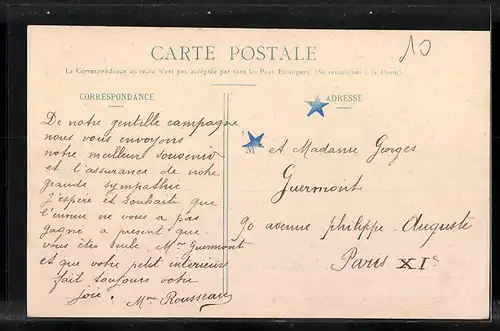 13
CARTE POSTALE
La Correspondance au recto n'est pas acceptée par tous les Pays Etrangers. (Se renseigner à la Poste).
CORRESPONDANCE
ADRESSE
De notre gentille campagne
nous vous envoyons
notre meilleur souvenir
et l'assurance de notre
grande sympathie.
J'espère et souhaite que
l'ennui ne vous a pas
gagné a present que
vous êtes seule, Mme Guermont
et que votre petit interieur
fait toujours votre
joie. Mme Rousseau
M et Madame Georges
Guermont
90 avenue Philippe-Auguste
Paris XIe